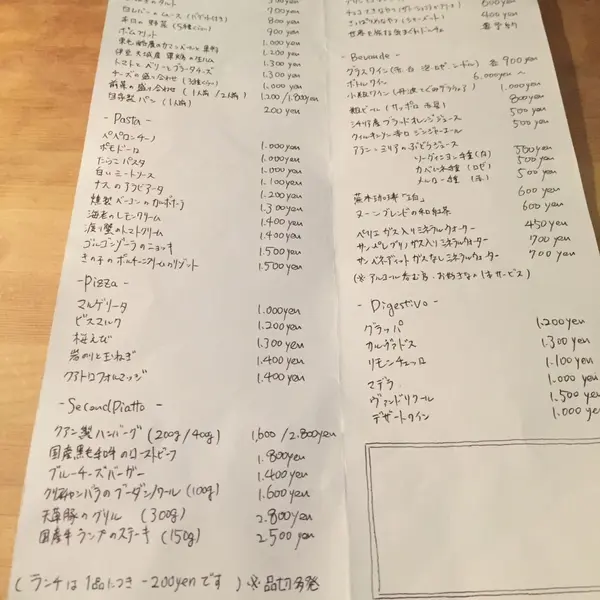 900 yen
1.000 yen
1.200 yen
1.300 yen
チーズの盛り合わせ 1.300 yen
前菜の盛り合わせ (1人前/2人前) 1.200/1.800 yen
自家製パン (1人前) 200 yen
- Pasta -
ペペロンチーノ 1.000 yen
ポモドーロ 1.000 yen
たらこパスタ 1.000 yen
白いミートソース 1.100 yen
ナスのアラビアータ 1.200 yen
燻製ベーコンのカルボナーラ 1.300 yen
海老のレモンクリーム 1.400 yen
渡り蟹のトマトクリーム 1.400 yen
ゴルゴンゾーラのニョッキ 1.500 yen
きのこのポルチーニクリームリゾット 1.500 yen
- Pizza -
マルゲリータ 1.000yen
ビスマルク 1.200 yen
桜えび 1.300 yen
岩のりと玉ねぎ 1.400 yen
クアトロフォルマッジ 1.400 yen
- Second Piatto -
クアン製ハンバーグ (200g/400g) 1,600/2.800yen
国産黒毛和牛のローストビーフ 1.800 yen
ブルーチーズバーガー 1.400 yen
(100g) 1.600 yen
天草豚のグリル (300g) 2.800 yen
国産牛ランプのステーキ (150g) 2.500 yen
(ランチは1品につき -200yenです) ※品切多発
400 yen
- Bevande -
グラスワイン 各900yen
ボトルワイン 6.000yen~
1.000 yen
瓶ビール (サッポロ 赤星) 800 yen
シチリア産ブラッドオレンジジュース 500 yen
ウィルキンソン辛口ジンジャーエール 500 yen
アラン・ミリアのぶどうジュース
ソーヴィニヨン種 (白) 500 yen
カベルネ種 (ロゼ) 500 yen
メルロー種 (赤) 500 yen
600 yen
ヌーンブレンドの和紅茶 600 yen
ペリエ ガス入りミネラルウォーター 450 yen
サンペレグリノ ガス入りミネラルウォーター 700 yen
サンベネデット ガスなしミネラルウォーター 700 yen
- Digestivo -
グラッパ 1.200yen
カルヴァドス 1.300 yen
リモンチェッロ 1.100 yen
マデラ 1.000 yen
ヴァンドリクール 1.500 yen
デザートワイン 1.000 yen